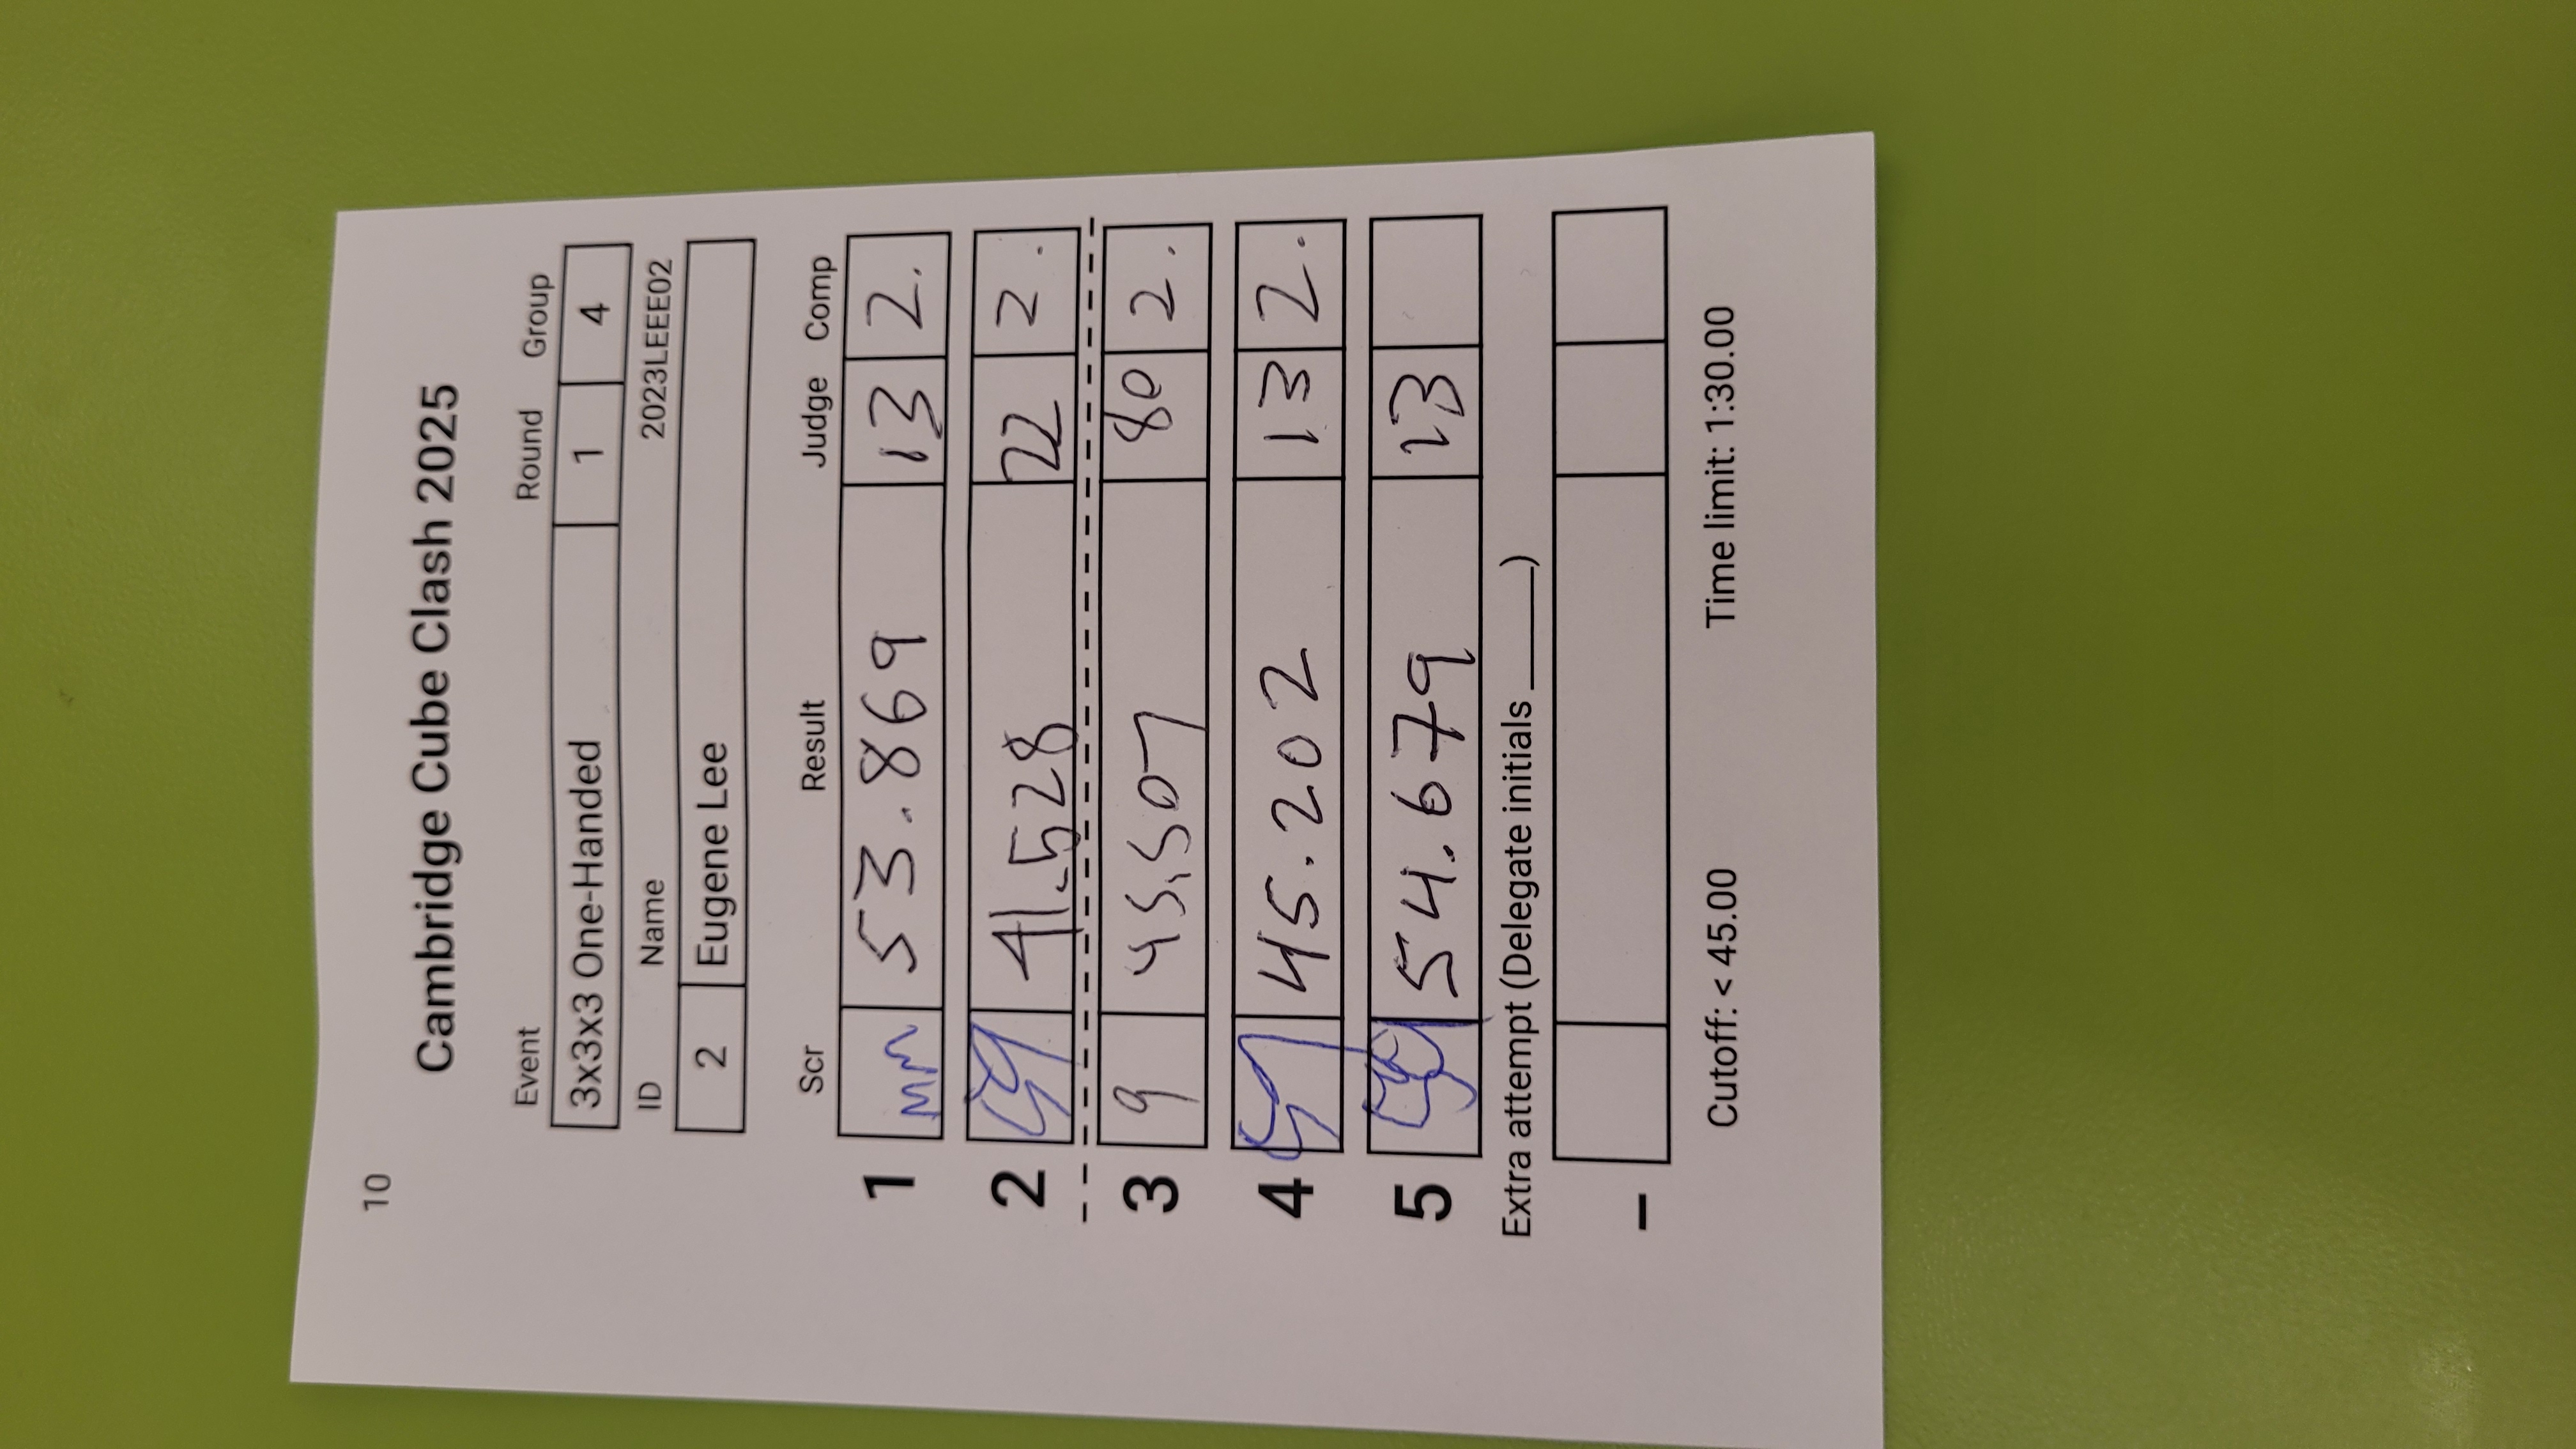 10
Cambridge Cube Clash 2025
Event Round Group
3x3x3 One-Handed 1 4
ID Name 2023LEEE02
2 Eugene Lee
Scr Result Judge Comp
1 53.869 13 2.
2 41.528 22 2.
3 9 45.507 80 2.
4 45.202 13 2.
5 54.679 13
Extra attempt (Delegate initials ____)
–
Cutoff: < 45.00 Time limit: 1:30.00